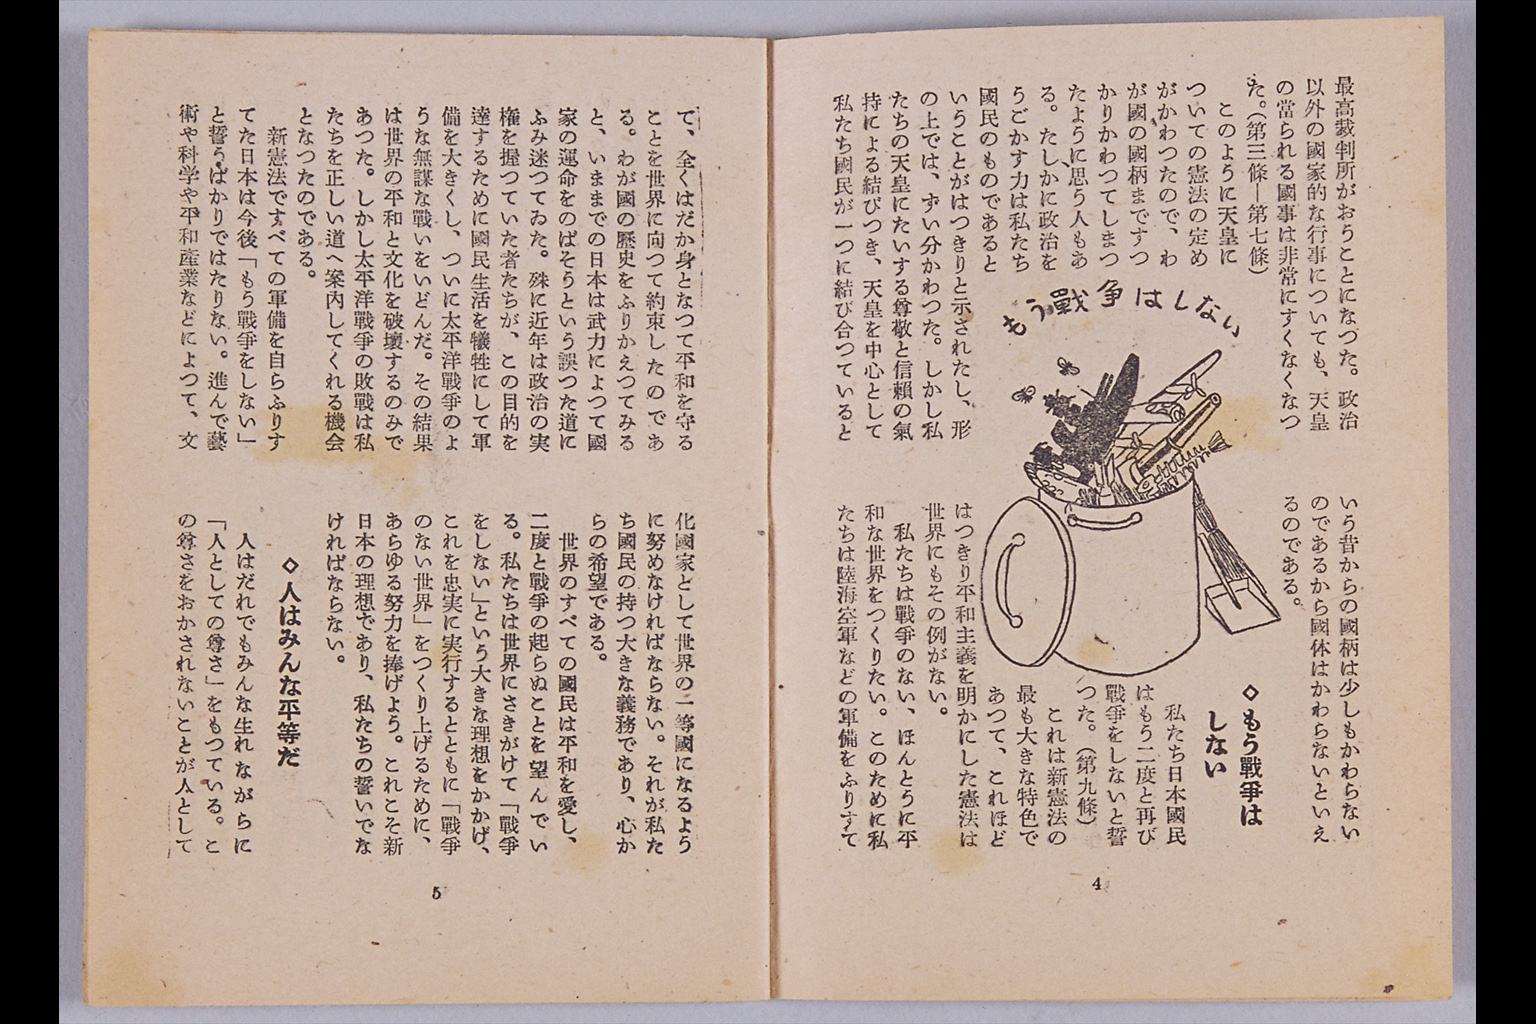 最高裁判所がおうことになつた。政治
以外の國家的な行事についても、天皇
の當られる國事は非常にすくなくなつ
た。(第三條—第七條)
このように天皇に
ついての憲法の定め
がかわつたので、わ
が國の國柄まですつ
かりかわつてしまつ
たように思う人もあ
る。たしかに政治を
うごかす力は私たち
國民のものであると
いうことがはつきりと示されたし、形
の上では、ずい分かわつた。しかし私
たちの天皇にたいする尊敬と信頼の氣
持による結びつき、天皇を中心として
私たち國民が一つに結び合つていると
もう戰争はしない
いう昔からの國柄は少しもかわらない
のであるから國体はかわらないといえ
るのである。
◇もう戰爭は
しない
私たち日本國民
はもう二度と再び
戰爭をしないと誓
つた。(第九條)
これは新憲法の
最も大きな特色で
あつて、これほど
はつきり平和主義を明かにした憲法は
世界にもその例がない。
私たちは戰爭のない、ほんとうに平
和な世界をつくりたい。このために私
たちは陸海空軍などの軍備をふりすて
4
て、全くはだか身となつて平和を守る
ことを世界に向つて約束したのであ
る。わが國の歷史をふりかえつてみる
と、いままでの日本は武力によつて國
家の運命をのばそうという誤つた道に
ふみ迷つてゐた。殊に近年は政治の実
権を握つていた者たちが、この目的を
達するために國民生活を犠牲にして軍
備を大きくし、ついに太平洋戰爭のよ
うな無謀な戰いをいどんだ。その結果
は世界の平和と文化を破壞するのみで
あつた。しかし太平洋戰爭の敗戰は私
たちを正しい道へ案内してくれる機会
となつたのである。
新憲法ですべての軍備を自らふりす
てた日本は今後「もう戰爭をしない」
と誓うばかりではたりない。進んで藝
術や科学や平和産業などによつて、文
化國家として世界の一等國になるよう
に努めなければならない。それが私た
ち國民の持つ大きな義務であり、心か
らの希望である。
世界のすべての國民は平和を愛し、
二度と戰爭の起らぬことを望んでい
る。私たちは世界にさきがけて「戰爭
をしない」という大きな理想をかかげ、
これを忠実に実行するとともに「戰爭
のない世界」をつくり上げるために、
あらゆる努力を捧げよう。これこそ新
日本の理想であり、私たちの誓いでな
ければならない。
◇人はみんな平等だ
人はだれでもみんな生れながらに
「人としての尊さ」をもつている。こ
の尊さをおかされないことが人として
5